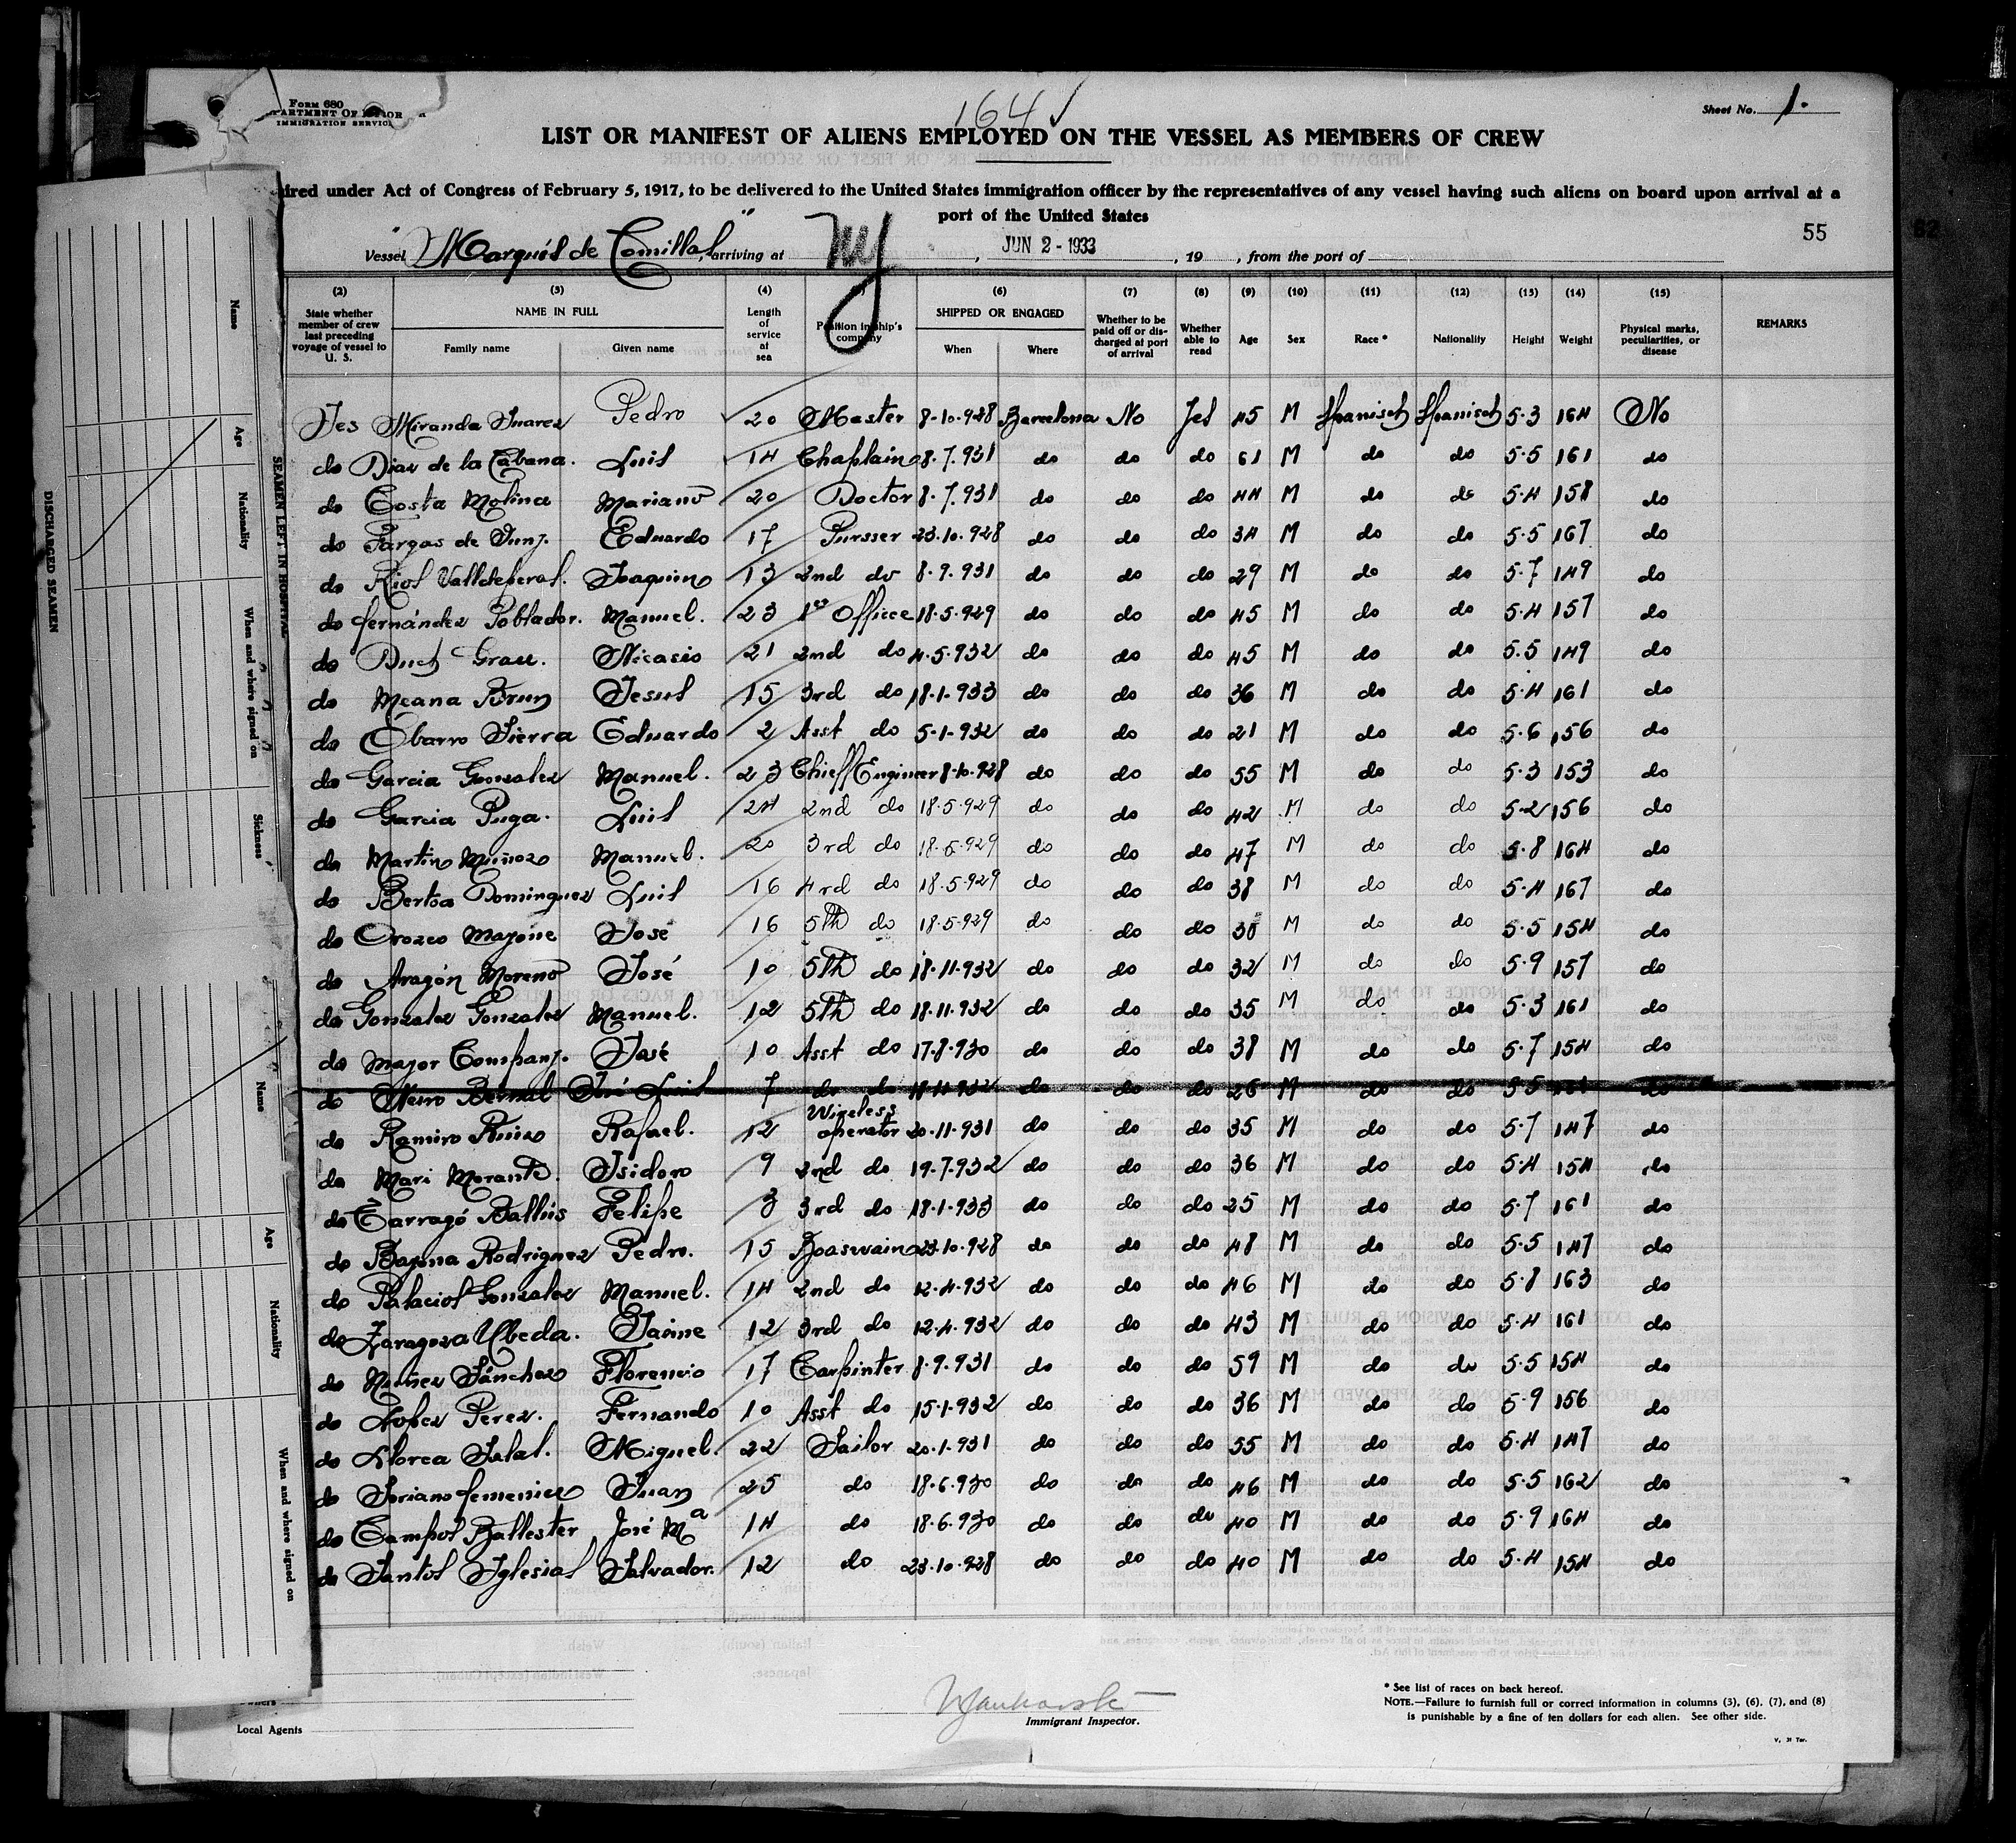 Form 680
DEPARTMENT OF LABOR
IMMIGRATION SERVICE
164 ✓
Sheet No. 1.
LIST OR MANIFEST OF ALIENS EMPLOYED ON THE VESSEL AS MEMBERS OF CREW
ired under Act of Congress of February 5, 1917, to be delivered to the United States immigration officer by the representatives of any vessel having such aliens on board upon arrival at a
port of the United States
55
Vessel "Marqués de Comillas", arriving at NY, JUN 2 - 1933, 19 , from the port of
(2) (3) (4) (6) (7) (8) (9) (10) (11) (12) (13) (14) (15)
State whether member of crew last preceding voyage of vessel to U. S. NAME IN FULL Family name Given name Length of service at sea Position in ship's company SHIPPED OR ENGAGED When Where Whether to be paid off or discharged at port of arrival Whether able to read Age Sex Race * Nationality Height Weight Physical marks, peculiarities, or disease REMARKS
Yes Miranda Suarez Pedro 20 Master 8-10-928 Barcelona No Yes 45 M Spanisch Spanisch 5-3 164 No
do Diaz de la Cabana. Luis 14 Chaplain 8.7.931 do do do 61 M do do 5.5 161 do
do Costa Molina Mariano 20 Doctor 8.7.931 do do do 44 M do do 5.4 158 do
do Fargas de Juny. Eduardo 17 Pursser 23.10.928 do do do 34 M do do 5.5 167 do
do Rios Valldeperas. Joaquin 13 2nd do 8.9.931 do do do 29 M do do 5.7 149 do
do fernández Poblador. Manuel. 23 1er Officce 18.5.929 do do do 45 M do do 5.4 157 do
do Duch Grau. Nicasio 21 2nd do 4.5.932 do do do 45 M do do 5.5 149 do
do Meana Brun Jesus 15 3rd do 18-1-933 do do do 36 M do do 5.4 161 do
do Obarro Sierra Eduardo 2 Asst do 5-1-932 do do do 21 M do do 5.6 156 do
do Garcia Gonzalez Manuel. 23 Chieff Engineer 8-10-928 do do do 55 M do do 5.3 153 do
do Garcia Puga. Luis 24 2nd do 18.5.929 do do do 42 M do do 5-2 156 do
do Martin Muñoz Manuel. 20 3rd do 18.5.929 do do do 47 M do do 5.8 164 do
do Bertoa Dominguez Luis 16 4rd do 18.5.929 do do do 38 M do do 5.4 167 do
do Orozco José 16 5th do 18.5.929 do do do 38 M do do 5.5 154 do
do Aragón Moreno José 10 5th do 18.11.932 do do do 32 M do do 5.9 157 do
do Gonzalez Gonzalez Manuel. 12 5th do 18.11.932 do do do 35 M do do 5.3 161 do
do Mayor Company. José 10 Asst do 17.8.930 do do do 38 M do do 5.7 154 do
do Bernal José Luis 7 do do 18.11.932 do do do 26 M do do 5.5 do
do Ramiro Ruiz Rafael. 12 Wireless operator 20.11.931 do do do 35 M do do 5.7 147 do
do Mari Morante. Isidoro 9 2nd do 19.7.932 do do do 36 M do do 5.4 154 do
do Tarragó Balluis Felipe 3 3rd do 18.1.933 do do do 25 M do do 5.7 161 do
do Bayona Rodriguez Pedro. 15 Boaswain 23.10.928 do do do 48 M do do 5.5 147 do
do Palacios Gonzalez Manuel. 14 2nd do 12.4.932 do do do 46 M do do 5.8 163 do
do Zaragoza Ubeda. Jaime 12 3rd do 12.4.932 do do do 43 M do do 5.4 161 do
do Nuñez Sánchez Florencio 17 Carpinter 8.9.931 do do do 59 M do do 5.5 154 do
do Lopez Perez. Fernando 10 Asst do 15.1.932 do do do 36 M do do 5.9 156 do
do Llorca Salat. Miguel. 22 Sailor 20.1.931 do do do 55 M do do 5.4 147 do
do Soriano femenies Juan 25 do 18.6.930 do do do 46 M do do 5.5 162 do
do Campos Ballester José Mª 14 do 18.6.930 do do do 40 M do do 5.9 164 do
do Santos Iglesias Salvador. 12 do 23.10.928 do do do 40 M do do 5.4 154 do
Owners
Local Agents
Immigrant Inspector.
* See list of races on back hereof.
NOTE.—Failure to furnish full or correct information in columns (3), (6), (7), and (8)
is punishable by a fine of ten dollars for each alien. See other side.
DISCHARGED SEAMEN
SEAMEN LEFT IN HOSPITAL
Name
Age
Nationality
When and where signed on
Sickness
Name
Age
Nationality
When and where signed on